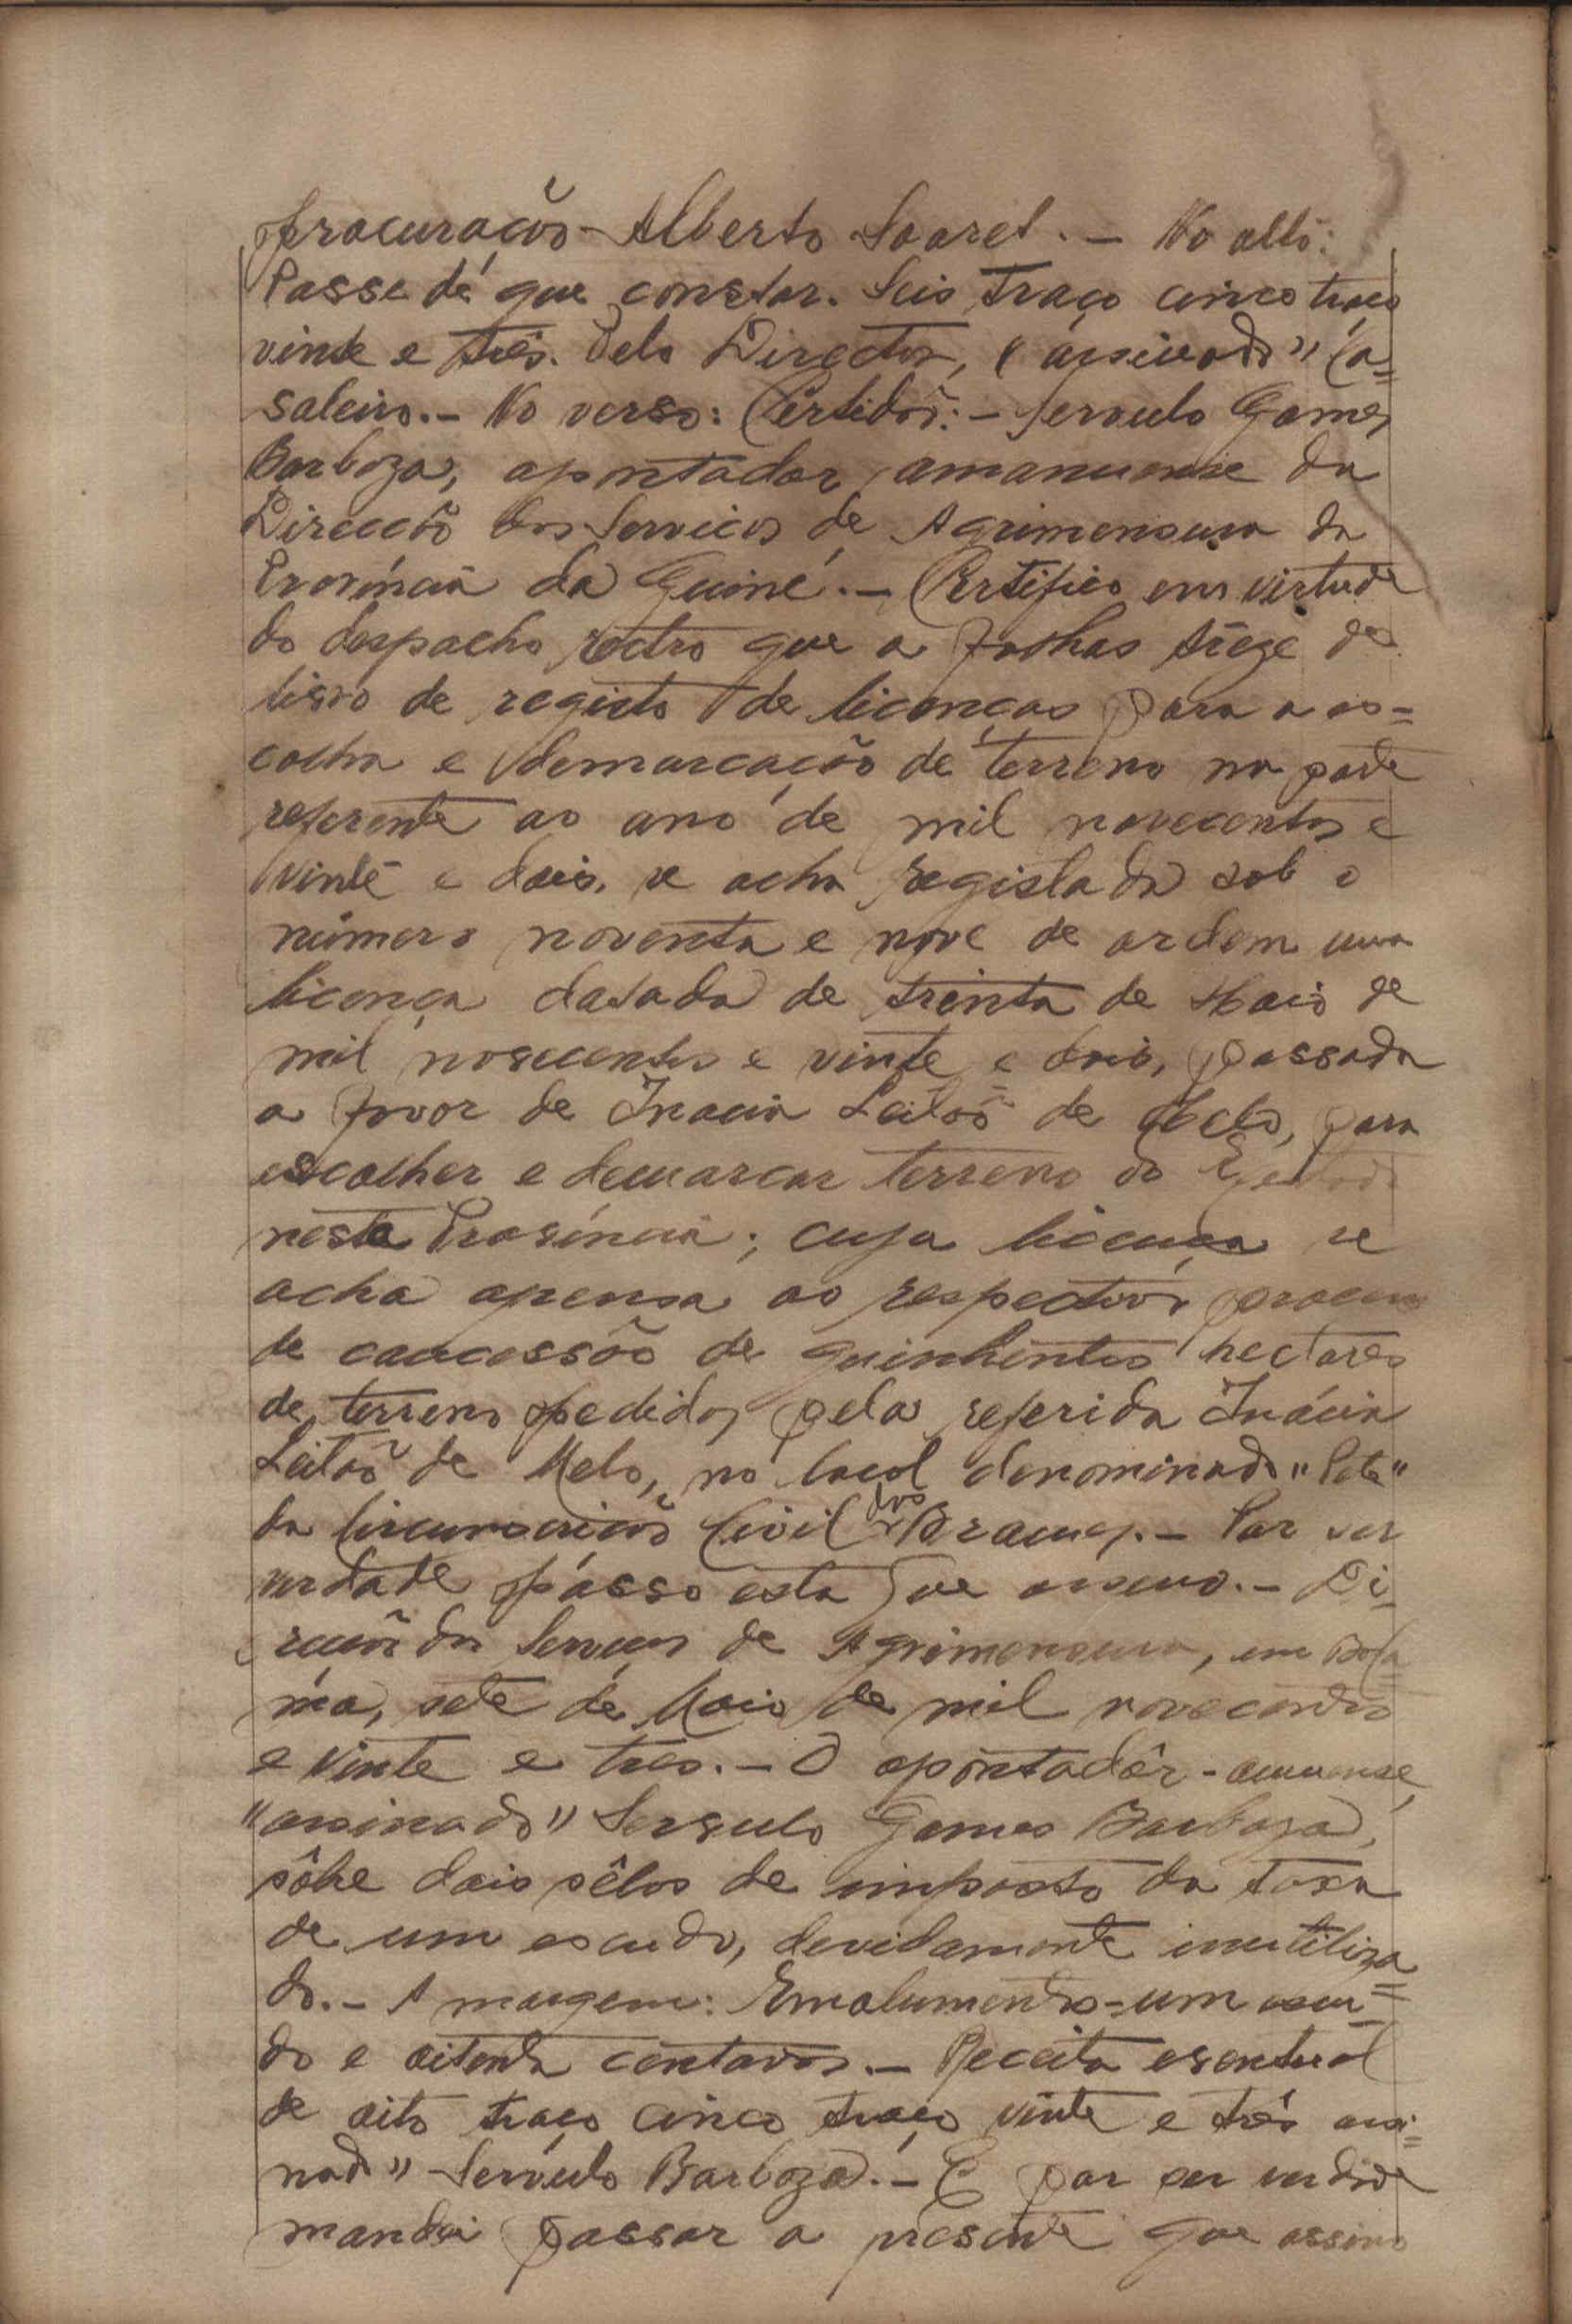 procuração - Alberto Soares. - No alto:
Passe dê que constar. Seis traço cinco traço
vinte e três. Pelo Director, (assinado" Ca=
saleiro. - No verso: Certidão: - Servulo Gomes
Barboza, apontador amanuense da
Direcção dos Serviços de Agrimensura da
Província da Guiné. - Certifico em virtude
do despacho rectro que a folhas treze do
livro de registo de licenças para a es=
colha e demarcação de terreno na parte
referente ao ano de mil novecentos e
vinte e dois, se acha registada sob o
número noventa e nove de ordem uma
licença datada de trinta de Maio de
mil novecentos e vinte e dois, passada
a favor de Inacia Leitão de Melo, para
escolher e demarcar terreno do Estado
nesta Província; cuja licença se
acha apensa ao respectivo processo
de concessão de quinhentos hectares
de terreno pedidos pela referida Inácia
Leitão de Melo, no local denominado "Pete"
da Circunscrição Civil dos Brames. - Por ser
verdade passo esta que assino. - Di-
recção dos Serviços de Agrimensura, em Bola=
ma, sete de Maio de mil novecentos
e vinte e tres. - O apontadôr - amanuense,
"assinado" Servulo Gomes Barboza,
sôbe dois sêlos de imposto da taxa
de um escudo, devidamente inutiliza=
do. - A margem: Emolumentos - um escu=
do e oitenta centavos. - Receita eventual
de oito traço cinco traço vinte e três assi=
nado" Servulo Barboza. - E por ser verdade
mandei passar a presente que assino